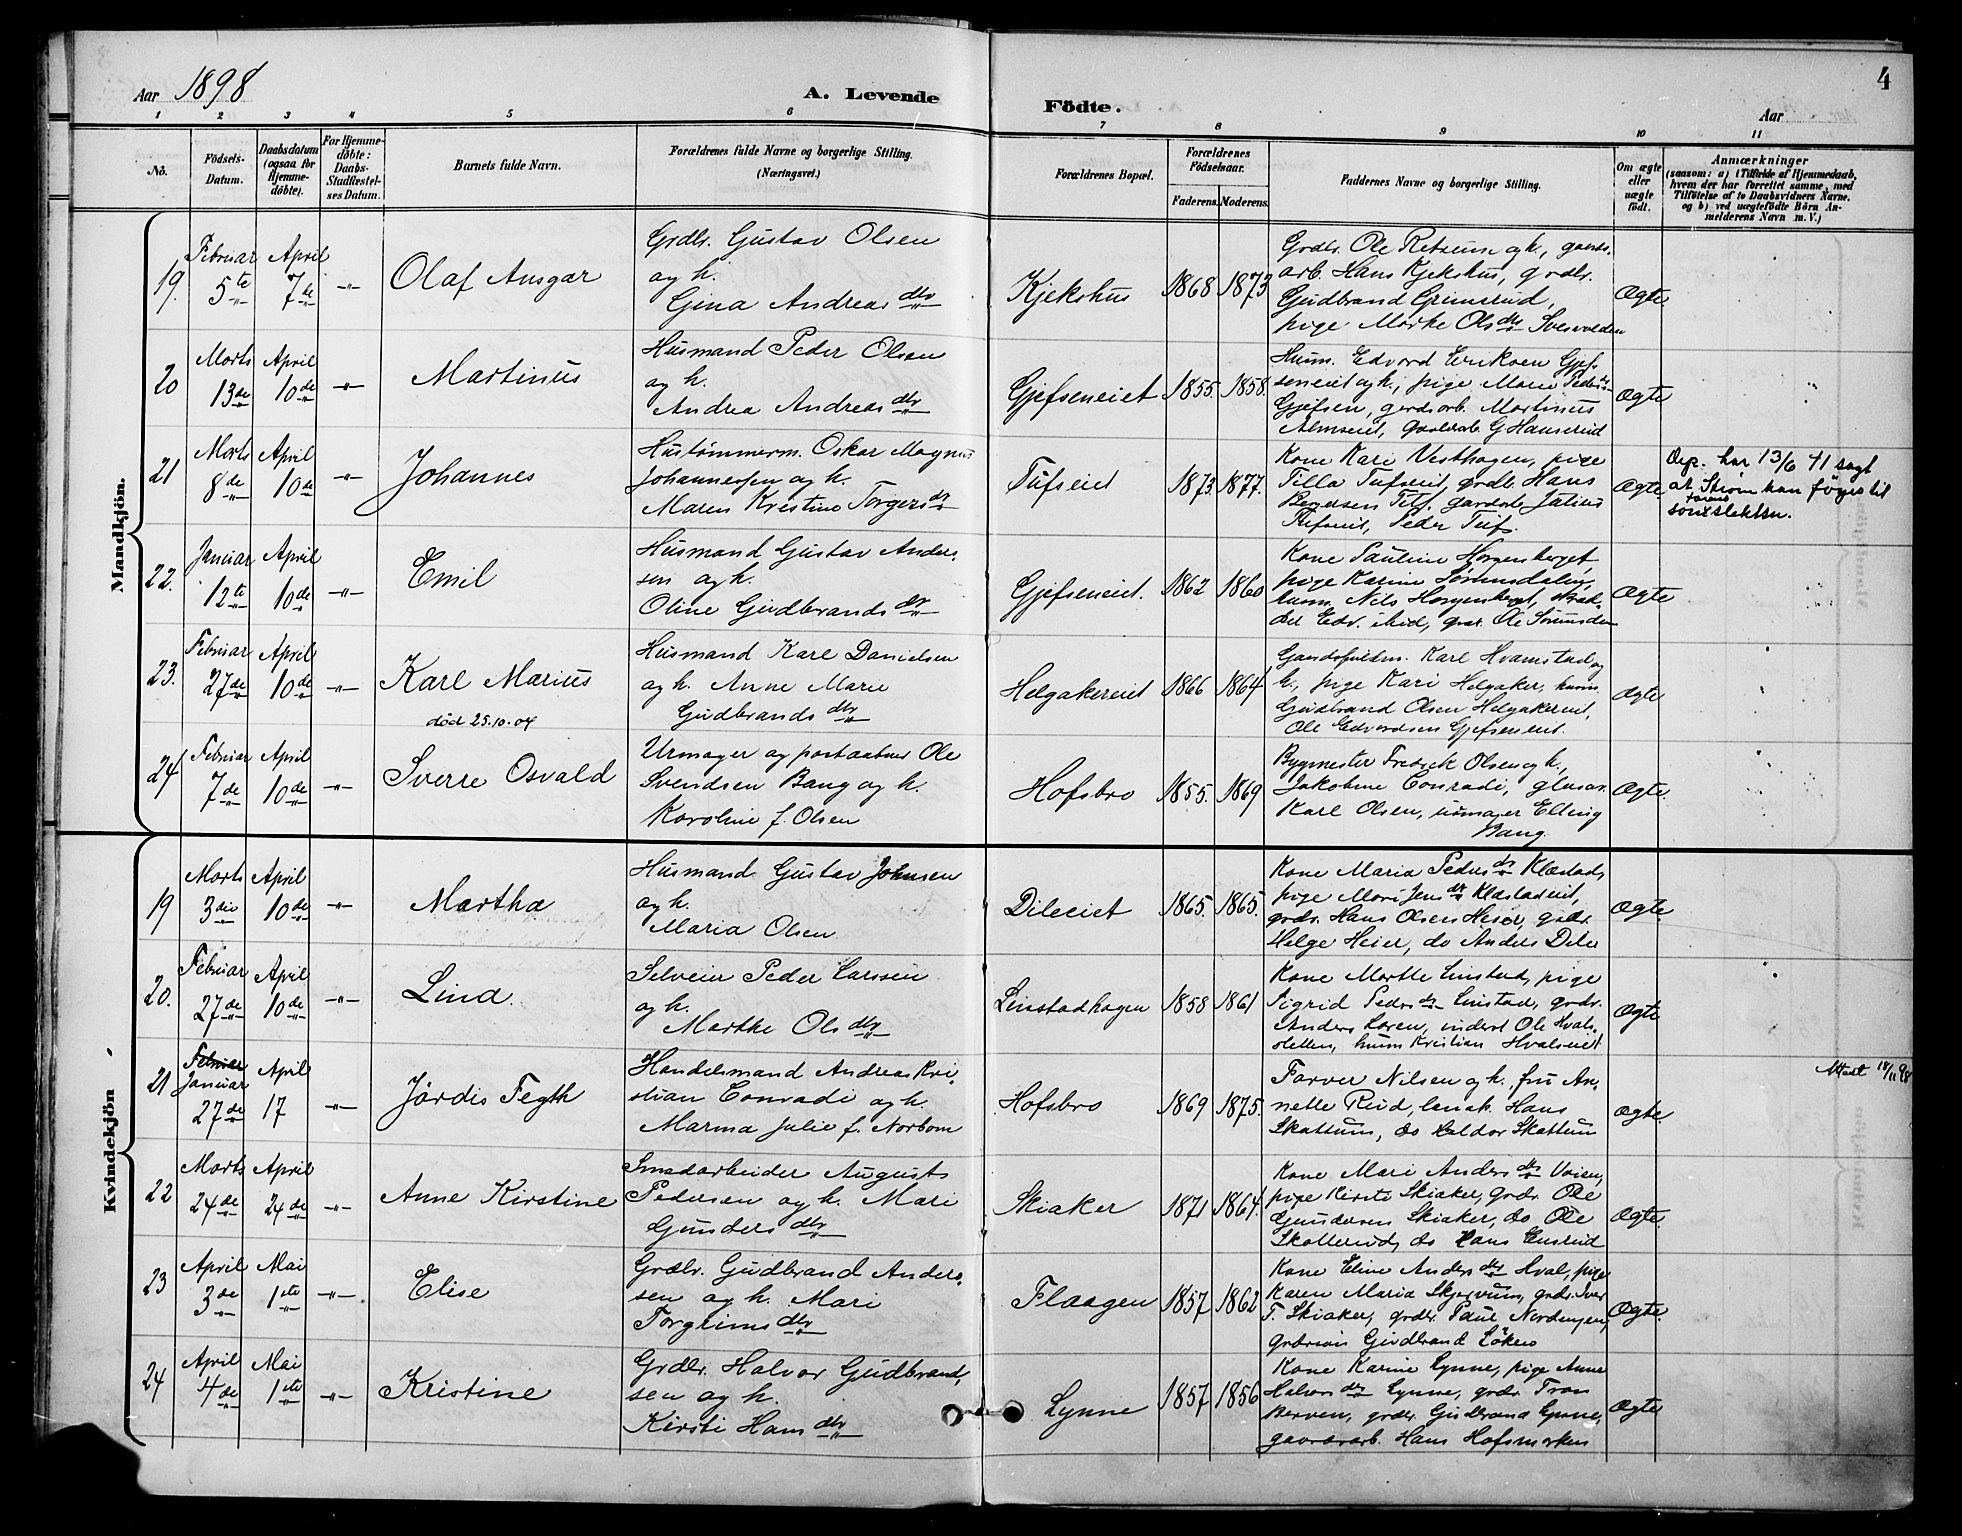 Aar 1898
A. Levende
Födte.
Aar
4
1 2 3 4 5 6 7 8 9 10 11
No.
Födsels-
Datum.
Daabsdatum
(ogsaa for
Hjemme-
döbte).
For Hjemme-
döbte:
Daabs-
Stadfæstel-
ses Datum.
Barnets fulde Navn.
Forældrenes fulde Navne og borgerlige Stilling.
(Næringsvei.)
Forældrenes Bopæl.
Forældrenes
Födselsaar.
Faderens. Moderens.
Faddernes Navne og borgerlige Stilling.
Om ægte
eller
uægte
födt.
Anmærkninger
(saasom: a) i Tilfælde af Hjemmedaab,
hvem der har forrettet samme, med
Tilföielse af to Daabsvidners Navne,
og b) ved uægtefödte Börn An-
melderens Navn m. V.)
Mandkjön.
19.
Februar
5te
April
7de
-"-
Olaf Ansgar
Grdbr. Gustav Olsen
og h.
Gina Andreasdtr
Kjekshus
1868 1873
Grdbr. Ole Retrum og h., gaards-
arb. Hans Kjekshus, grdbr.
Gudbrand Grimsrud,
pige Marthe Olsdtr Svesvolden
Ægte
20
Marts
13de
April
10de
-"-
Martinus
Husmand Peder Olsen
og h.
Andrea Andreasdtr
Gjefseneiet
1855. 1858.
Husm. Edvard Eriksen Gjef-
seneiet og h., pige Marie Peders
Gjefsen, gardsarb. Martinus
Almseiet, G Hanserud
Ægte
21
Marts
8de
April
10de
-"-
Johannes
Hustømmerm. Oskar Magnus
Johannessen og h.
Maren Kristine Torgersdr
Tufseiet
1873. 1877.
Kone Kari Vesthagen, pige
Tilla Tufseiet, grdbr Hans
Berndsen Tuf, Julius
Tufseiet, Peder Tufs.
Ægte
Dep. har 13/6 41 sagt
at Strøm kan føyes til
som slektsn.
22.
Januar
12te
April
10de
-"-
Emil
Husmand Gustav Ander-
sen og h.
Oline Gudbrandsdr
Gjefseneiet.
1862 1860
Kone Pauline Horgensberget,
pige Karine Sørumsdalen,
husm. Nils Horgensberget, skræd-
der Edv. Ole Sørumsden
Ægte
23.
Februar
27de
April
10de
-"-
Karl Marius
død 25.10.04
Husmand Karl Danielsen
og h. Anne Marie
Gudbrandsdtr
Helgakereiet
1866 1864
Karl Hvamstad og
h., pige Kari Helgaker, husm.
Gudbrand Olsen Helgakereiet,
Ole Edvardsen Gjefseneiet.
Ægte
24
Februar
7de
April
10de
-"-
Sverre Osvald
Urmager og postaabner Ole
Svendsen Bang og h.
Karoline f. Olsen
Hofsbro
1855. 1869
Bygmester Fredrik Olsen og h.,
Jakobine Conradi,
Karl Olsen, urmager Elling
Bang.
Ægte.
Kvindekjön
19
Marts
3die
April
10de
-"-
Martha
Husmand Gustav Johnsen
og h.
Maria Olsen
Dileeiet
1865. 1865.
Kone Maria Pedersdr Klæstad,
pige Mari Jensdr Klæstadeiet,
grdbr. Hans Olsen Heier, grdbr.
Helge Heier, do Anders Dile
Ægte
20.
Februar
27de
April
10de
-"-
Lina
Selveier Peder Larssen
og h.
Marthe Olsdtr
Linstadhagen
1858 1861
Kone Marthe Linstad, pige
Sigrid Pedersdr Linstad, grdbr.
Anders Loren, inderst Ole Hvals-
sletten, husm Kristian Hvalseiet
Ægte
21
Februar
Januar
27de
April
17
-"-
Jørdis Fegth
Handelsmand Andreas Kri-
stian Conradi og h.
Marma Julie f. Norbom
Hofsbro
1869 1875.
Farver Nilsen og h., fru An-
nette Rud, lensk. Hans
Skattum, do Haldor Skattum
Ægte.
Attest 18/11 98
22
Marts
24de
April
24de
-"-
Anne Kirstine
Smedarbeider August
Pedersen og h. Mari
Gundersdtr
Skiaker
1871 1864.
Kone Mari Andersdtr Voien,
pige Kirsti Skiaker, grdbr. Ole
Gundersen Skiaker, do Ole
Skollerud, do Hans Ensrud
Ægte.
23
April
3de
Mai
1ste
-"-
Elise
Grdbr. Gudbrand Ander-
sen og h. Mari
Torgrimsdtr
Flaagen
1857 1862
Kone Eline Andersdtr Hval, pige
Karen Maria Skjervum, grdbr. Iver
T. Skiaker, grdbr. Paul Nordengen,
Gudbrand Løken
Ægte.
24
April
4de
Mai
1ste
-"-
Kristine
Grdbr. Halvor Gudbrand-
sen og h.
Kirsti Hansdtr
Lynne
1857 1856
Kone Karine Lynne, pige Anne
Halvorsdtr Lynne, grdbr. Tran
Berven, grdbr. Gudbrand Lynne,
gaardsarb. Hans Hofsmarken
Ægte.